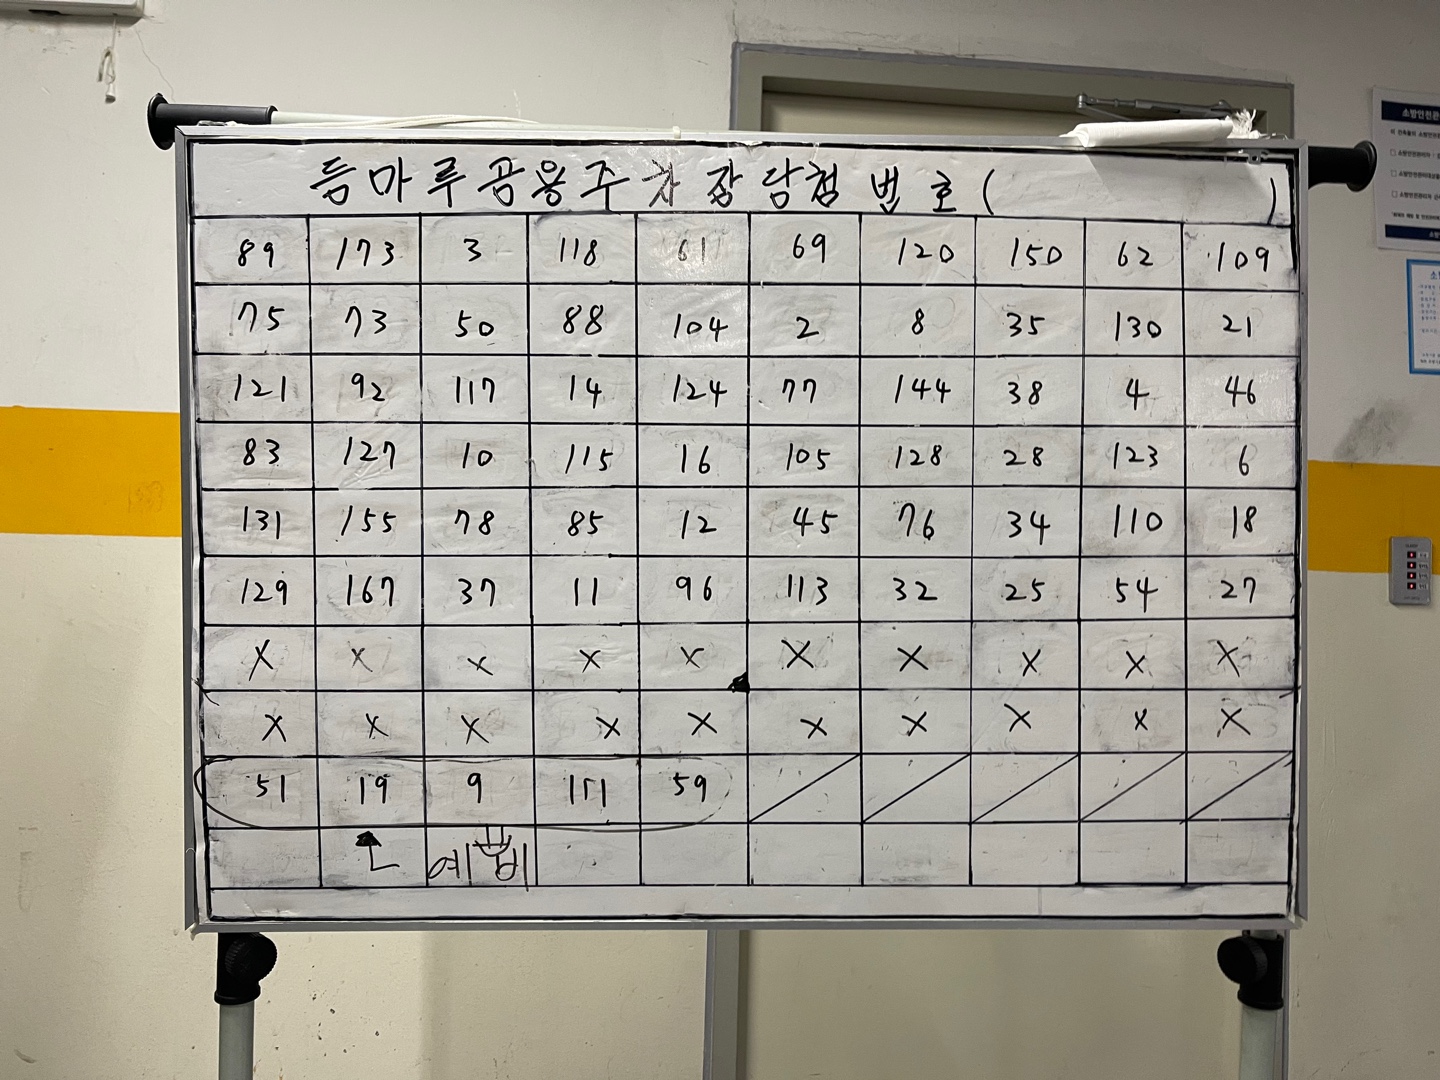 등마루공용주차장당첨번호( )
89 173 3 118 61 69 120 150 62 109
75 73 50 88 104 2 8 35 130 21
121 92 117 14 124 77 144 38 4 46
83 127 10 115 16 105 128 28 123 6
131 155 78 85 12 45 76 34 110 18
129 167 37 11 96 113 32 25 54 27
X X X X X X X X X X
X X X X X X X X X X
51 19 9 59
예비
소방안전관